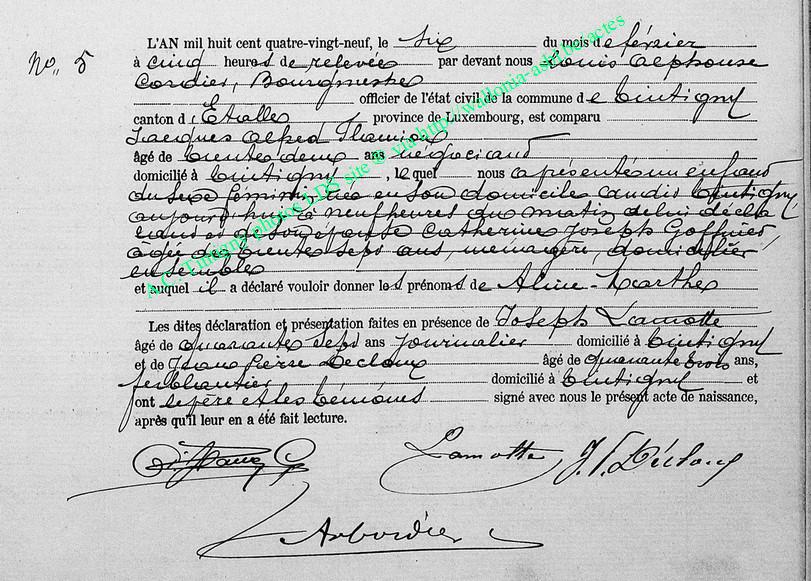 No. 5
L'AN mil huit cent quatre-vingt-neuf, le six du mois de février
à cinq heures de relevée par devant nous Louis Alphonse
Cordier, Bourgmestre
officier de l'état civil de la commune de Tintigny
canton d'Etalle province de Luxembourg, est comparu
Jacques Alfred
âgé de trente deux ans négociant
domicilié à Tintigny, lequel nous a présenté un enfant
du sexe féminin née en son domicile audit Tintigny
aujourd'hui à neuf heures du matin de lui décla
rant et de son épouse Catherine Joseph Goffinet
âgée de trente sept ans, ménagère, domiciliés
ensemble
et auquel il a déclaré vouloir donner les prénoms de Aline-Marthe
Les dites déclaration et présentation faites en présence de Joseph Lamotte
âgé de quarante sept ans journalier domicilié à Tintigny
et de Jean Pierre Decloux âgé de quarante trois ans,
ferblantier domicilié à Tintigny et
ont le père et les témoins signé avec nous le présent acte de naissance,
après qu'il leur en a été fait lecture.
Lamotte J. P. Décloux
A.C. Tintigny photos LDS site @ via http://wallonia-asbl.be/actes